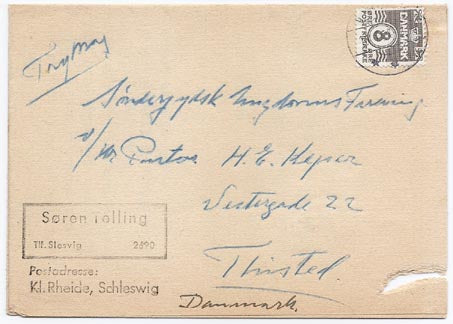 Tryksag
8
DANMARK
Sønderjydsk Ungdoms Forening
v/ Hr. Pastor H. E. Kepsar
Vestergade 22
Thisted.
Danmark.
Søren Tolling
Tlf. Slesvig 2690
Postadresse:
Kl. Rheide, Schleswig